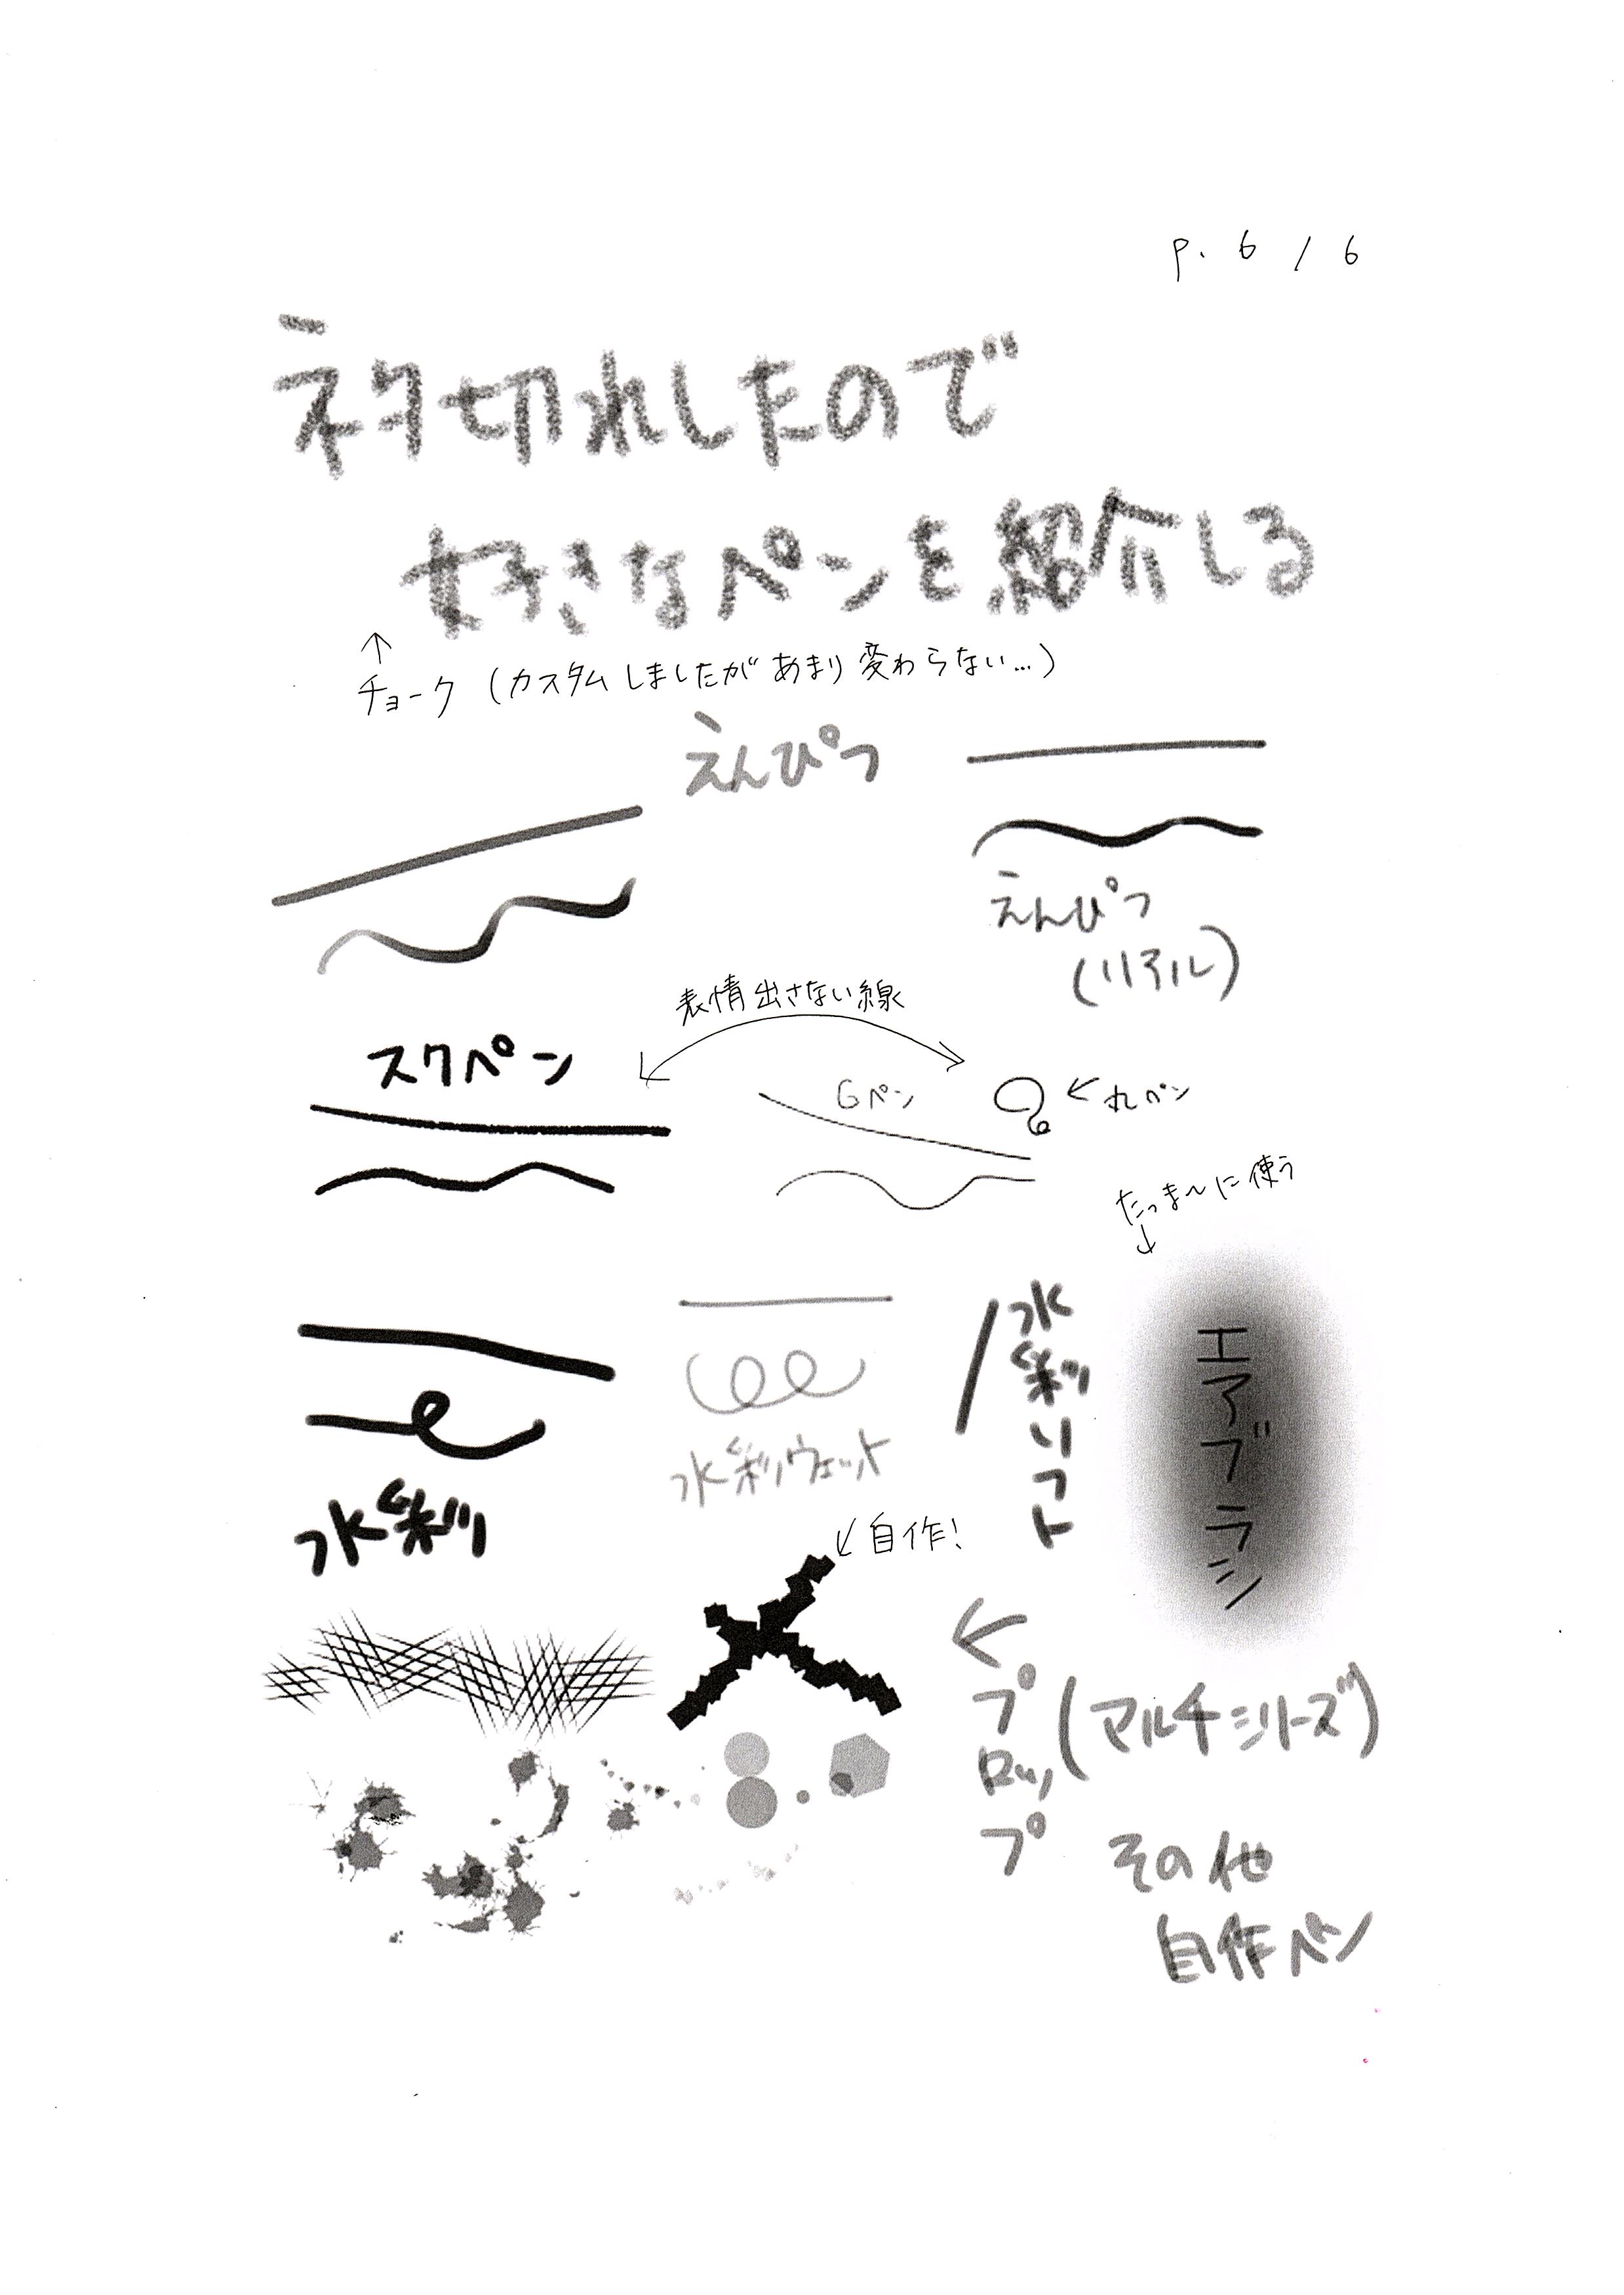 p. 6 / 6
ネタ切れしたので
好きなペンを紹介しる
↑
チョーク (カスタムしましたがあまり変わらない…)
えんぴつ
えんぴつ
(リアル)
表情出さない線
スクペン
Gペン
←丸ペン
たっま〜に使う
↓
水彩
水彩ウェット
水彩ソフト
エアブラシ
↙自作!
←プロップ
(マルチシリーズ)
その他
自作ペン